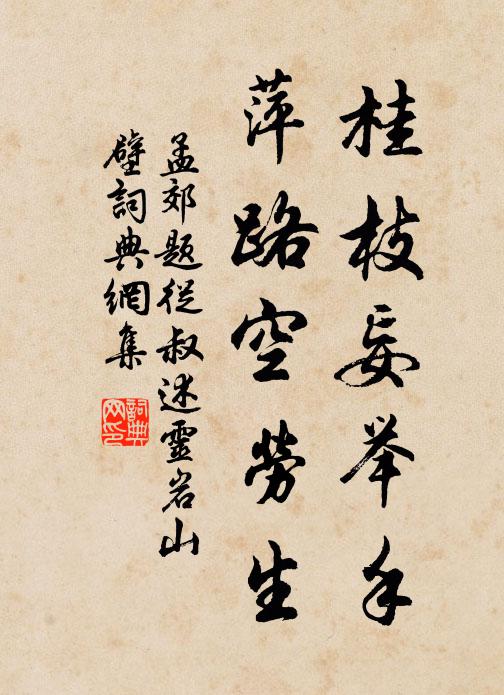 桂枝妄举手
萍路空勞生
孟郊题從叔述靈岩山
壁詞典網集
詞典
网印